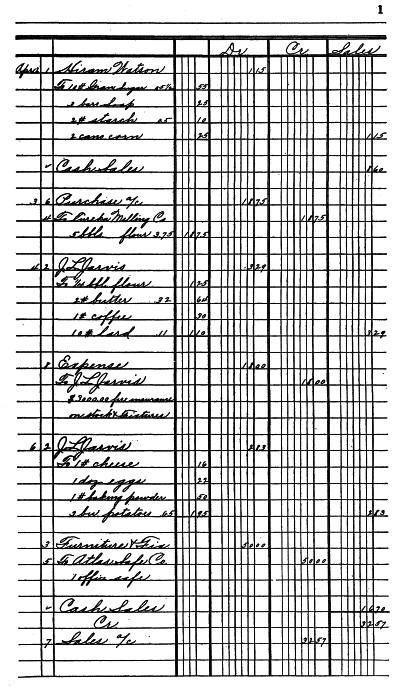 1
Dr Cr Sales
April 1 Hiram Watson 1 15
To 10# Gran Sugar 05½ 55
3 bars soap 25
2# starch 05 10
2 cans corn 25 1 15
✓ Cash Sales 8 60
3 6 Purchase a/c 18 75
4 To Eureka Milling Co 18 75
5 bbls flour 3.75 18 75
4 2 J L Jarvis 3 29
To ¼ bbl flour 1 25
2# butter .32 64
1# coffee 30
10# lard .11 1 10 3 29
8 Expense 18 00
To J L Jarvis 18 00
$3000.00 fire insurance
on stock & fixtures
6 2 J L Jarvis 2 83
To 1# cheese 16
1 doz eggs 22
1# baking powder 50
3 bu potatoes 65 1 95 2 83
3 Furniture & Fix 50 00
5 To Atlas Safe Co 50 00
1 office safe
✓ Cash Sales 16 70
Cr 32 57
7 Sales a/c 32 57